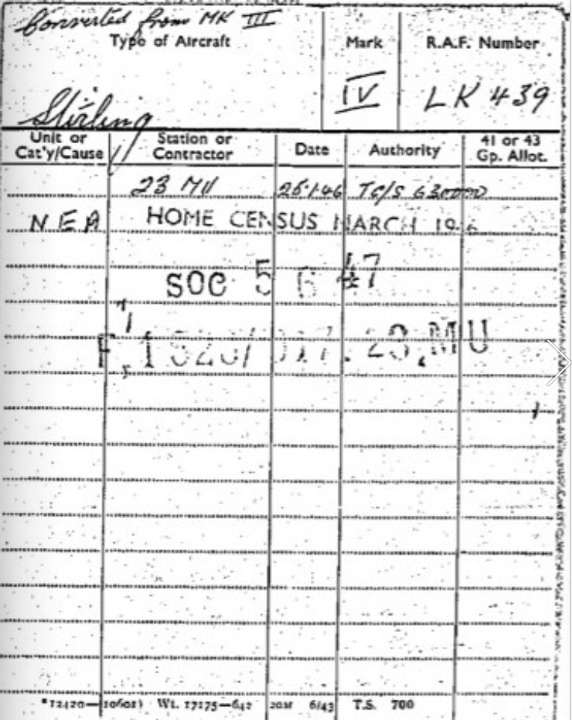 Converted from MK III
Type of Aircraft
Mark
R.A.F. Number
Stirling
IV
LK 439
Unit or Cat'y/Cause
Station or Contractor
Date
Authority
41 or 43 Gp. Allot.
23 MU 26.1.46 TC/S
NEA HOME CENSUS MARCH
SOC 5 6 47
23.MU
Wt. 17175—642 20M 6/43 T.S. 700